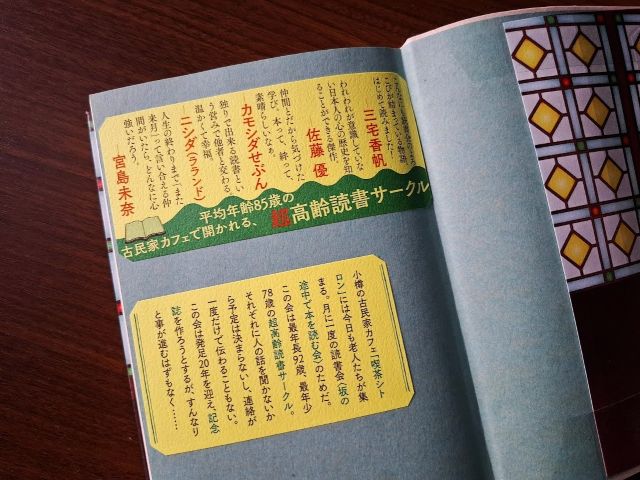 こびが詰まっている物語、
はじめて読みました。
三宅香帆
われわれが意識していな
い日本人の心の歴史を知
ることができる傑作。
佐藤 優
仲間とだから気づけた
学び。本って、絆って、
素晴らしいなぁ。
カモシダせぶん
独りで出来る読書とい
う営みで他者と交わる。
温かくて幸福。
ニシダ(ラランド)
人生の終わりまで「また
来月」って言い合える仲
間がいたら、どんなに心
強いだろう。
宮島未奈
平均年齢85歳の
超高齢読書サークル
古民家カフェで開かれる、
小樽の古民家カフェ「喫茶シト
ロン」には今日も老人たちが集
まる。月に一度の読書会〈坂の
途中で本を読む会〉のためだ。
この会は最年長92歳、最年少
78歳の超高齢読書サークル。
それぞれに人の話を聞かないか
ら予定は決まらないし、連絡が
一度だけで伝わることもない。
この会は発足20年を迎え、記念
誌を作ろうとするが、すんなり
と事が進むはずもなく……